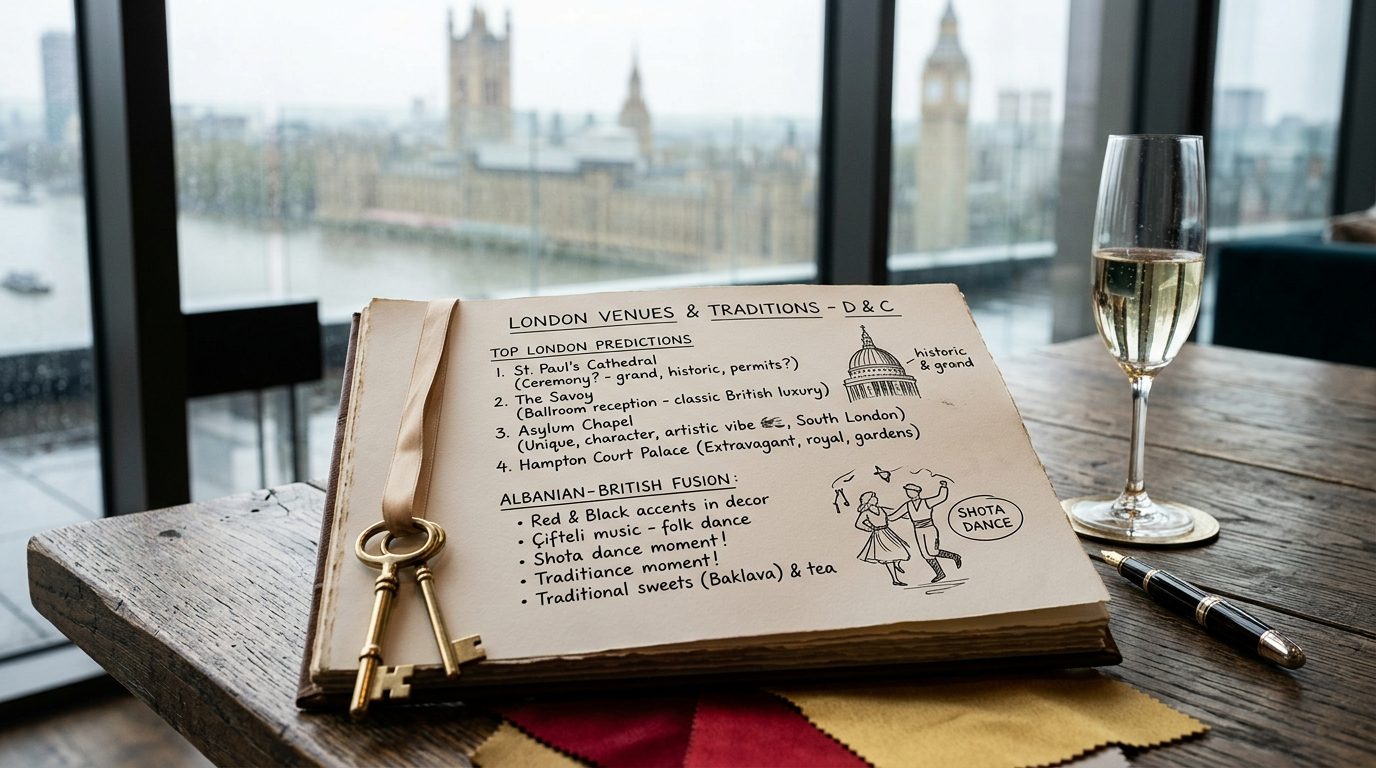 LONDON VENUES & TRADITIONS – D & C
TOP LONDON PREDICTIONS
1. St. Paul's Cathedral
(Ceremony? - grand, historic, permits?)
2. The Savoy
(Ballroom reception - classic British luxury)
3. Asylum Chapel
(Unique, character, artistic vibe , South London)
4. Hampton Court Palace (Extravagant, royal, gardens)
historic
& grand
ALBANIAN-BRITISH FUSION:
• Red & Black accents in decor
• Çifteli music - folk dance
• Shota dance moment!
• Traditiance moment!
• Traditional sweets (Baklava) & tea
SHOTA
DANCE